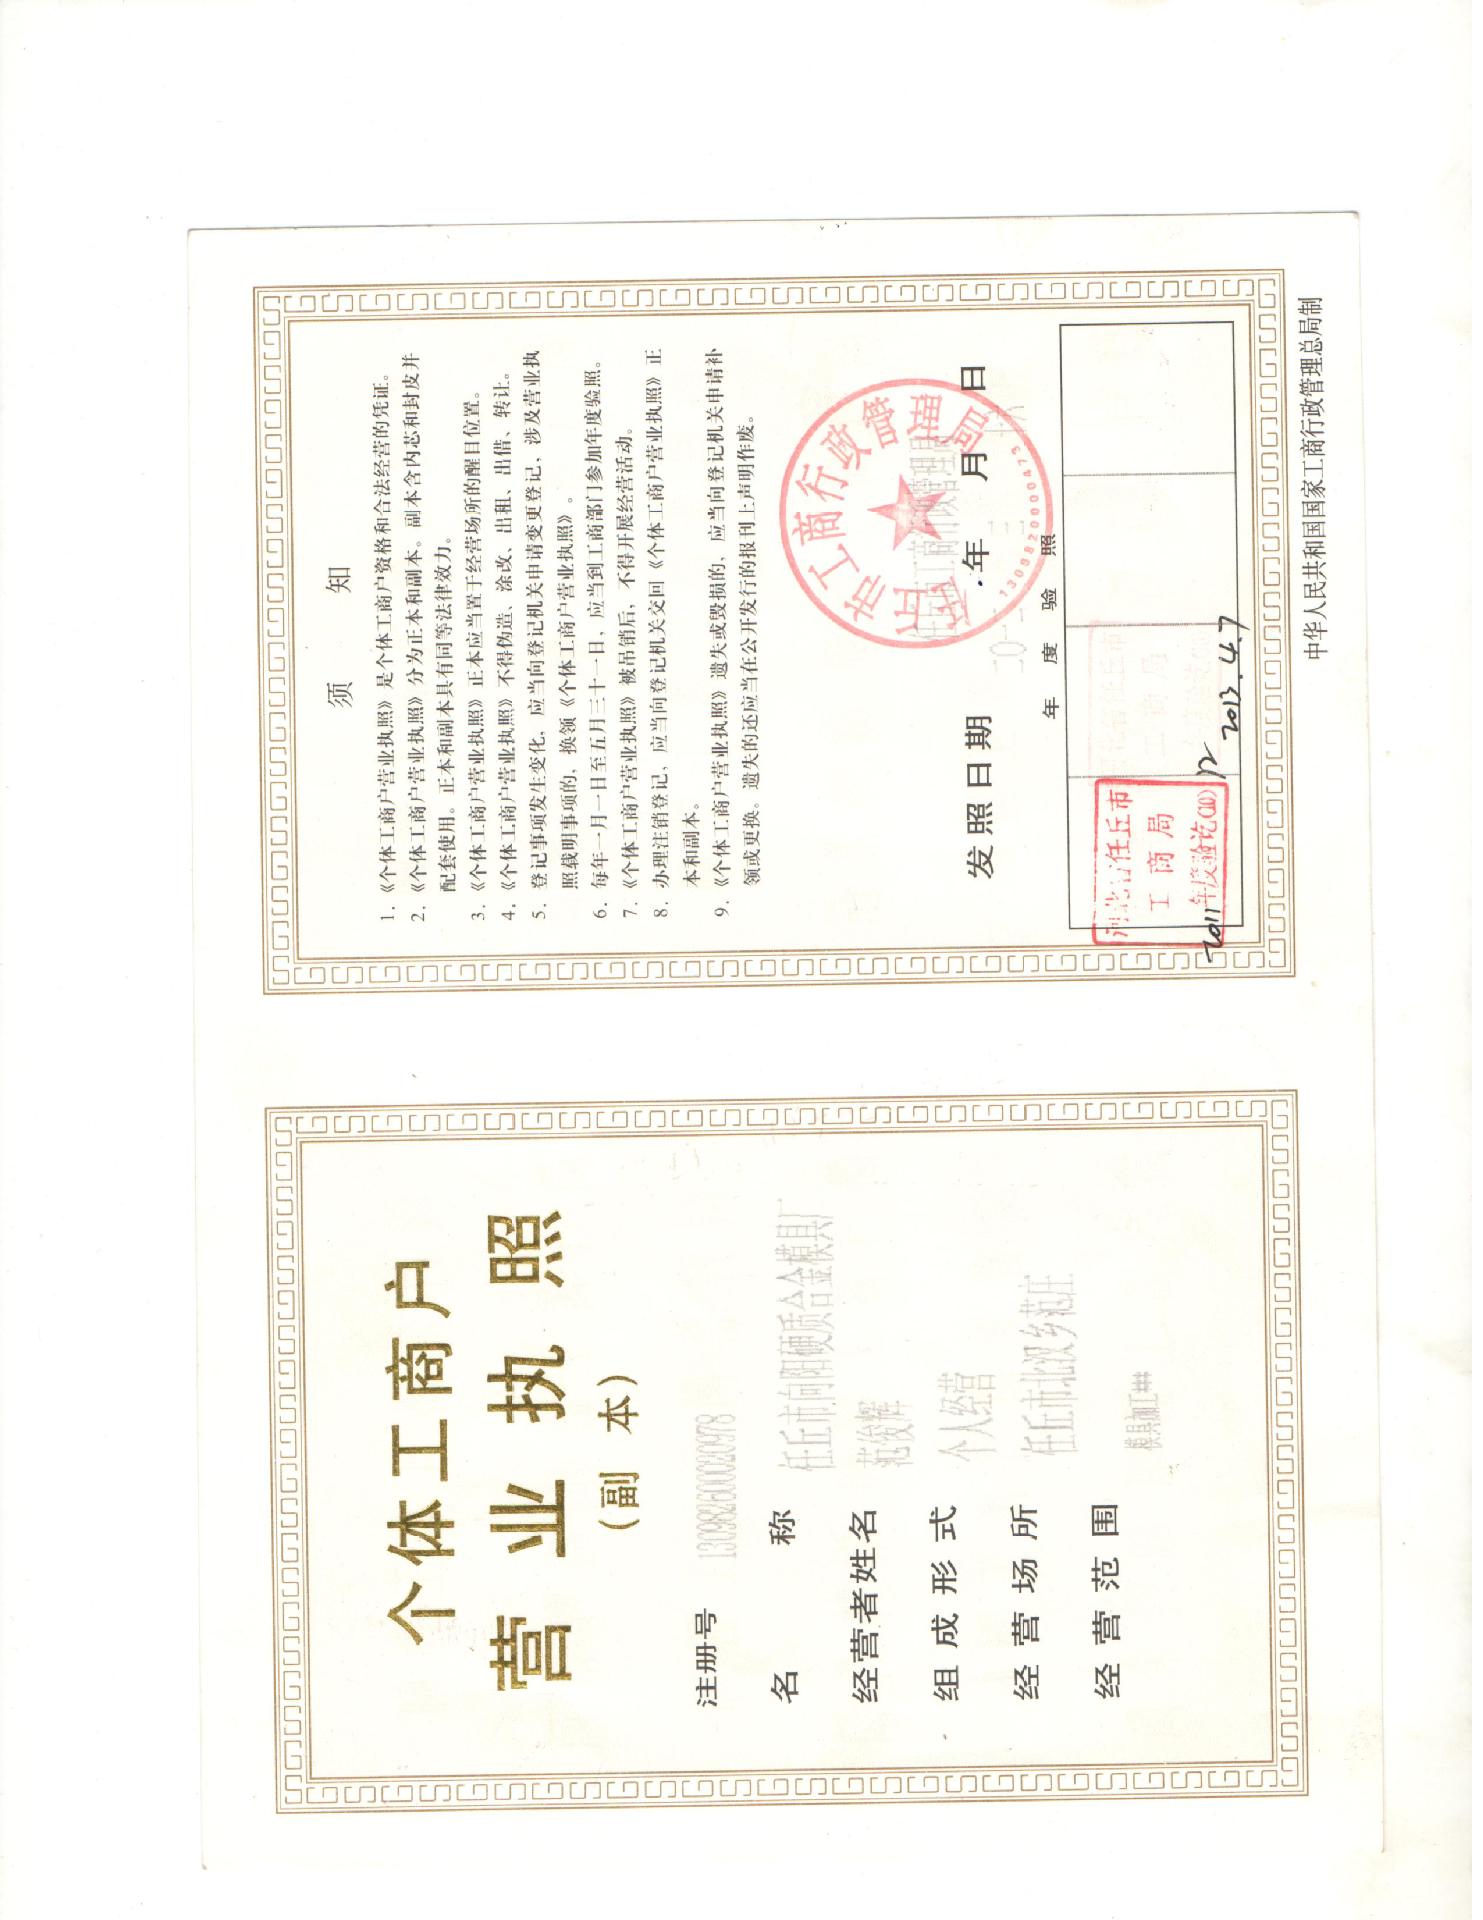 个体工商户
营业执照
（副 本）
注册号 130982600020978
名称 任丘市向阳硬质合金模具厂
经营者姓名 范俊辉
组成形式 个人经营
经营场所 任丘市北汉乡范庄
经营范围 模具加工##
须 知
1.《个体工商户营业执照》是个体工商户资格和合法经营的凭证。
2.《个体工商户营业执照》分为正本和副本。副本含内芯和封皮并
配套使用。正本和副本具有同等法律效力。
3.《个体工商户营业执照》正本应当置于经营场所的醒目位置。
4.《个体工商户营业执照》不得伪造、涂改、出租、出借、转让。
5. 登记事项发生变化，应当向登记机关申请变更登记，涉及营业执
照载明事项的，换领《个体工商户营业执照》。
6. 每年一月一日至五月三十一日，应当到工商部门参加年度验照。
7.《个体工商户营业执照》被吊销后，不得开展经营活动。
8. 办理注销登记，应当向登记机关交回《个体工商户营业执照》正
本和副本。
9.《个体工商户营业执照》遗失或毁损的，应当向登记机关申请补
领或更换。遗失的还应当在公开发行的报刊上声明作废。
任丘市工商行政管理局
1309820000473
发照日期 年 月 日
年 度 验 照
河北省任丘市
工商局
2011年度验讫(10)
12 2013.4.7
中华人民共和国国家工商行政管理总局制